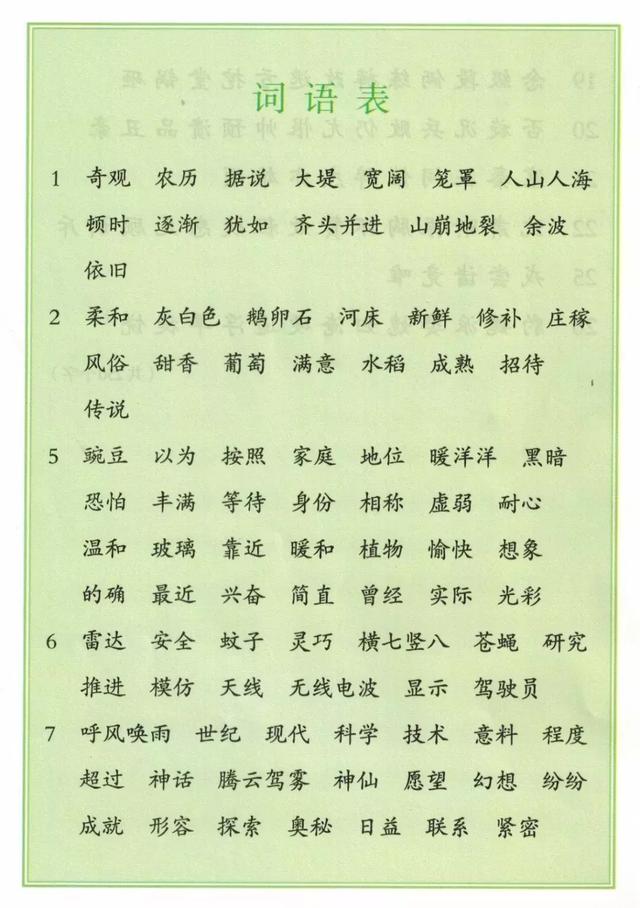 词语表
1 奇观 农历 据说 大堤 宽阔 笼罩 人山人海
顿时 逐渐 犹如 齐头并进 山崩地裂 余波
依旧
2 柔和 灰白色 鹅卵石 河床 新鲜 修补 庄稼
风俗 甜香 葡萄 满意 水稻 成熟 招待
传说
5 豌豆 以为 按照 家庭 地位 暖洋洋 黑暗
恐怕 丰满 等待 身份 相称 虚弱 耐心
温和 玻璃 靠近 暖和 植物 愉快 想象
的确 最近 兴奋 简直 曾经 实际 光彩
6 雷达 安全 蚊子 灵巧 横七竖八 苍蝇 研究
推进 模仿 天线 无线电波 显示 驾驶员
7 呼风唤雨 世纪 现代 科学 技术 意料 程度
超过 神话 腾云驾雾 神仙 愿望 幻想 纷纷
成就 形容 探索 奥秘 日益 联系 紧密